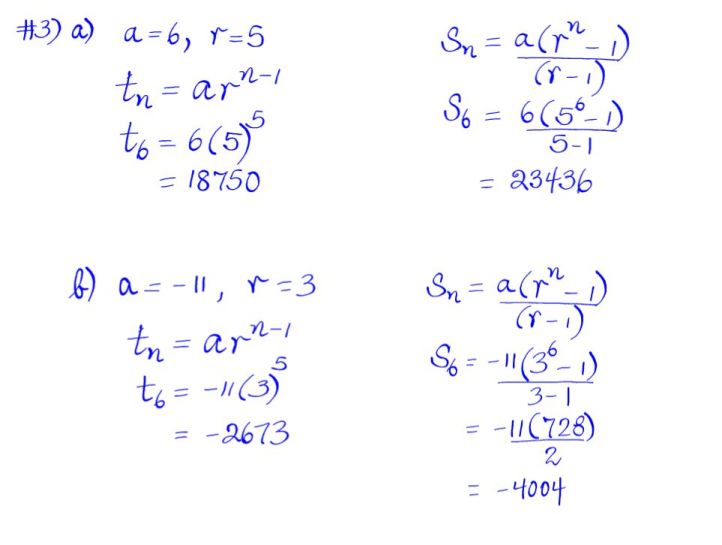 #3) a) a = 6, r = 5
tₙ = arⁿ⁻¹
t₆ = 6(5)⁵
= 18750
Sₙ = a(rⁿ - 1)
(r - 1)
S₆ = 6(5⁶ - 1)
5 - 1
= 23436
b) a = -11, r = 3
tₙ = arⁿ⁻¹
t₆ = -11(3)⁵
= -2673
Sₙ = a(rⁿ - 1)
(r - 1)
S₆ = -11(3⁶ - 1)
3 - 1
= -11(728)
2
= -4004